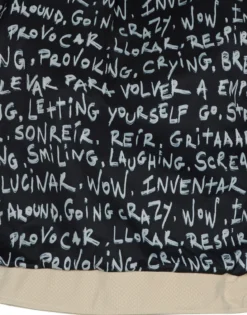 AROUND, GOING CRAZY, WOW, I
PROVOCAR, LLORAR, RESPIR
NG, PROVOKING, CRYING, BRE
LEVAR PARA VOLVER A EMP
NG, LETTING YOURSELF GO, S
SONREÍR, REÍR, GRITAAA
NG, SMILING, LAUGHING, SCRE
LUCINAR, WOW, INVENTAR
AROUND, GOING CRAZY, WOW, IN
PROVOCAR, LLORAR, RESPIR
NG, PROVOKING, CRYING, BRE